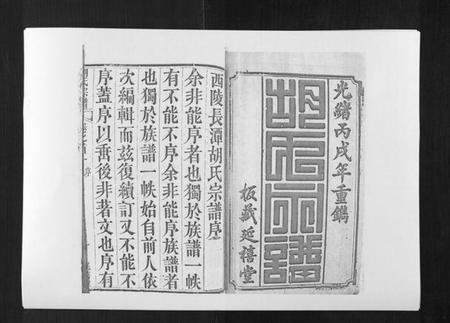 光緒丙戌年重鐫
胡氏宗譜
板藏延禧堂
西陵長潭胡氏宗譜序
余非能序者也獨於族譜一帙
有不能不序余非能序族譜者
也獨於族譜一帙始自前人依
次編輯而茲復續訂又不能不
序蓋序以垂後非著文也序有